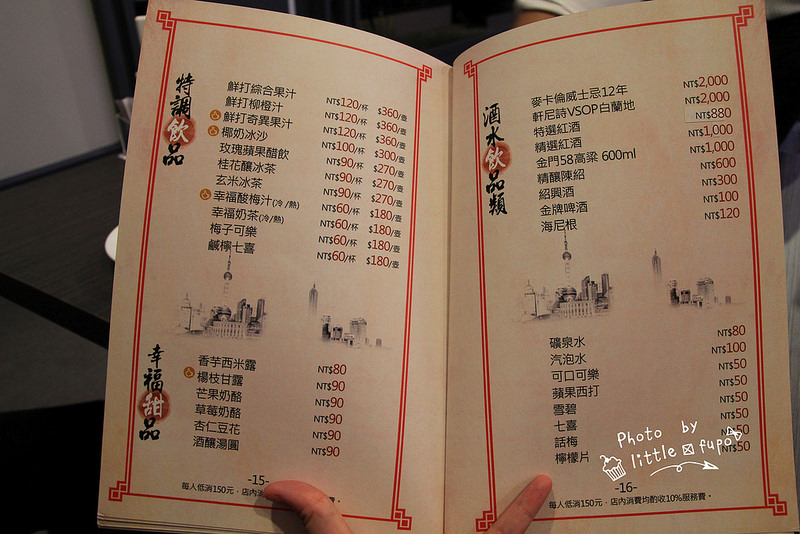 特調飲品
鮮打綜合果汁 NT$120/杯 $360/壺
鮮打柳橙汁 NT$120/杯 $360/壺
鮮打奇異果汁 NT$120/杯 $360/壺
椰奶冰沙 NT$100/杯 $300/壺
玫瑰蘋果醋飲 NT$90/杯 $270/壺
桂花釀冰茶 NT$90/杯 $270/壺
玄米冰茶 NT$90/杯 $270/壺
幸福酸梅汁(冷/熱) NT$60/杯 $180/壺
幸福奶茶(冷/熱) NT$60/杯 $180/壺
梅子可樂 NT$60/杯 $180/壺
鹹檸七喜 NT$60/杯 $180/壺
幸福甜品
香芋西米露 NT$80
楊枝甘露 NT$90
芒果奶酪 NT$90
草莓奶酪 NT$90
杏仁豆花 NT$90
酒釀湯圓 NT$90
-15-
每人低消150元，店內消 費。
酒水飲品類
麥卡倫威士忌12年 NT$2,000
軒尼詩VSOP白蘭地 NT$2,000
特選紅酒 NT$880
精選紅酒 NT$1,000
金門58高粱 600ml NT$1,000
精釀陳紹 NT$600
紹興酒 NT$300
金牌啤酒 NT$100
海尼根 NT$120
礦泉水 NT$80
汽泡水 NT$100
可口可樂 NT$50
蘋果西打 NT$50
雪碧 NT$50
七喜 NT$50
話梅 NT$50
檸檬片 NT$50
-16-
每人低消150元，店內消費均酌收10%服務費。
Photo by
little fupo